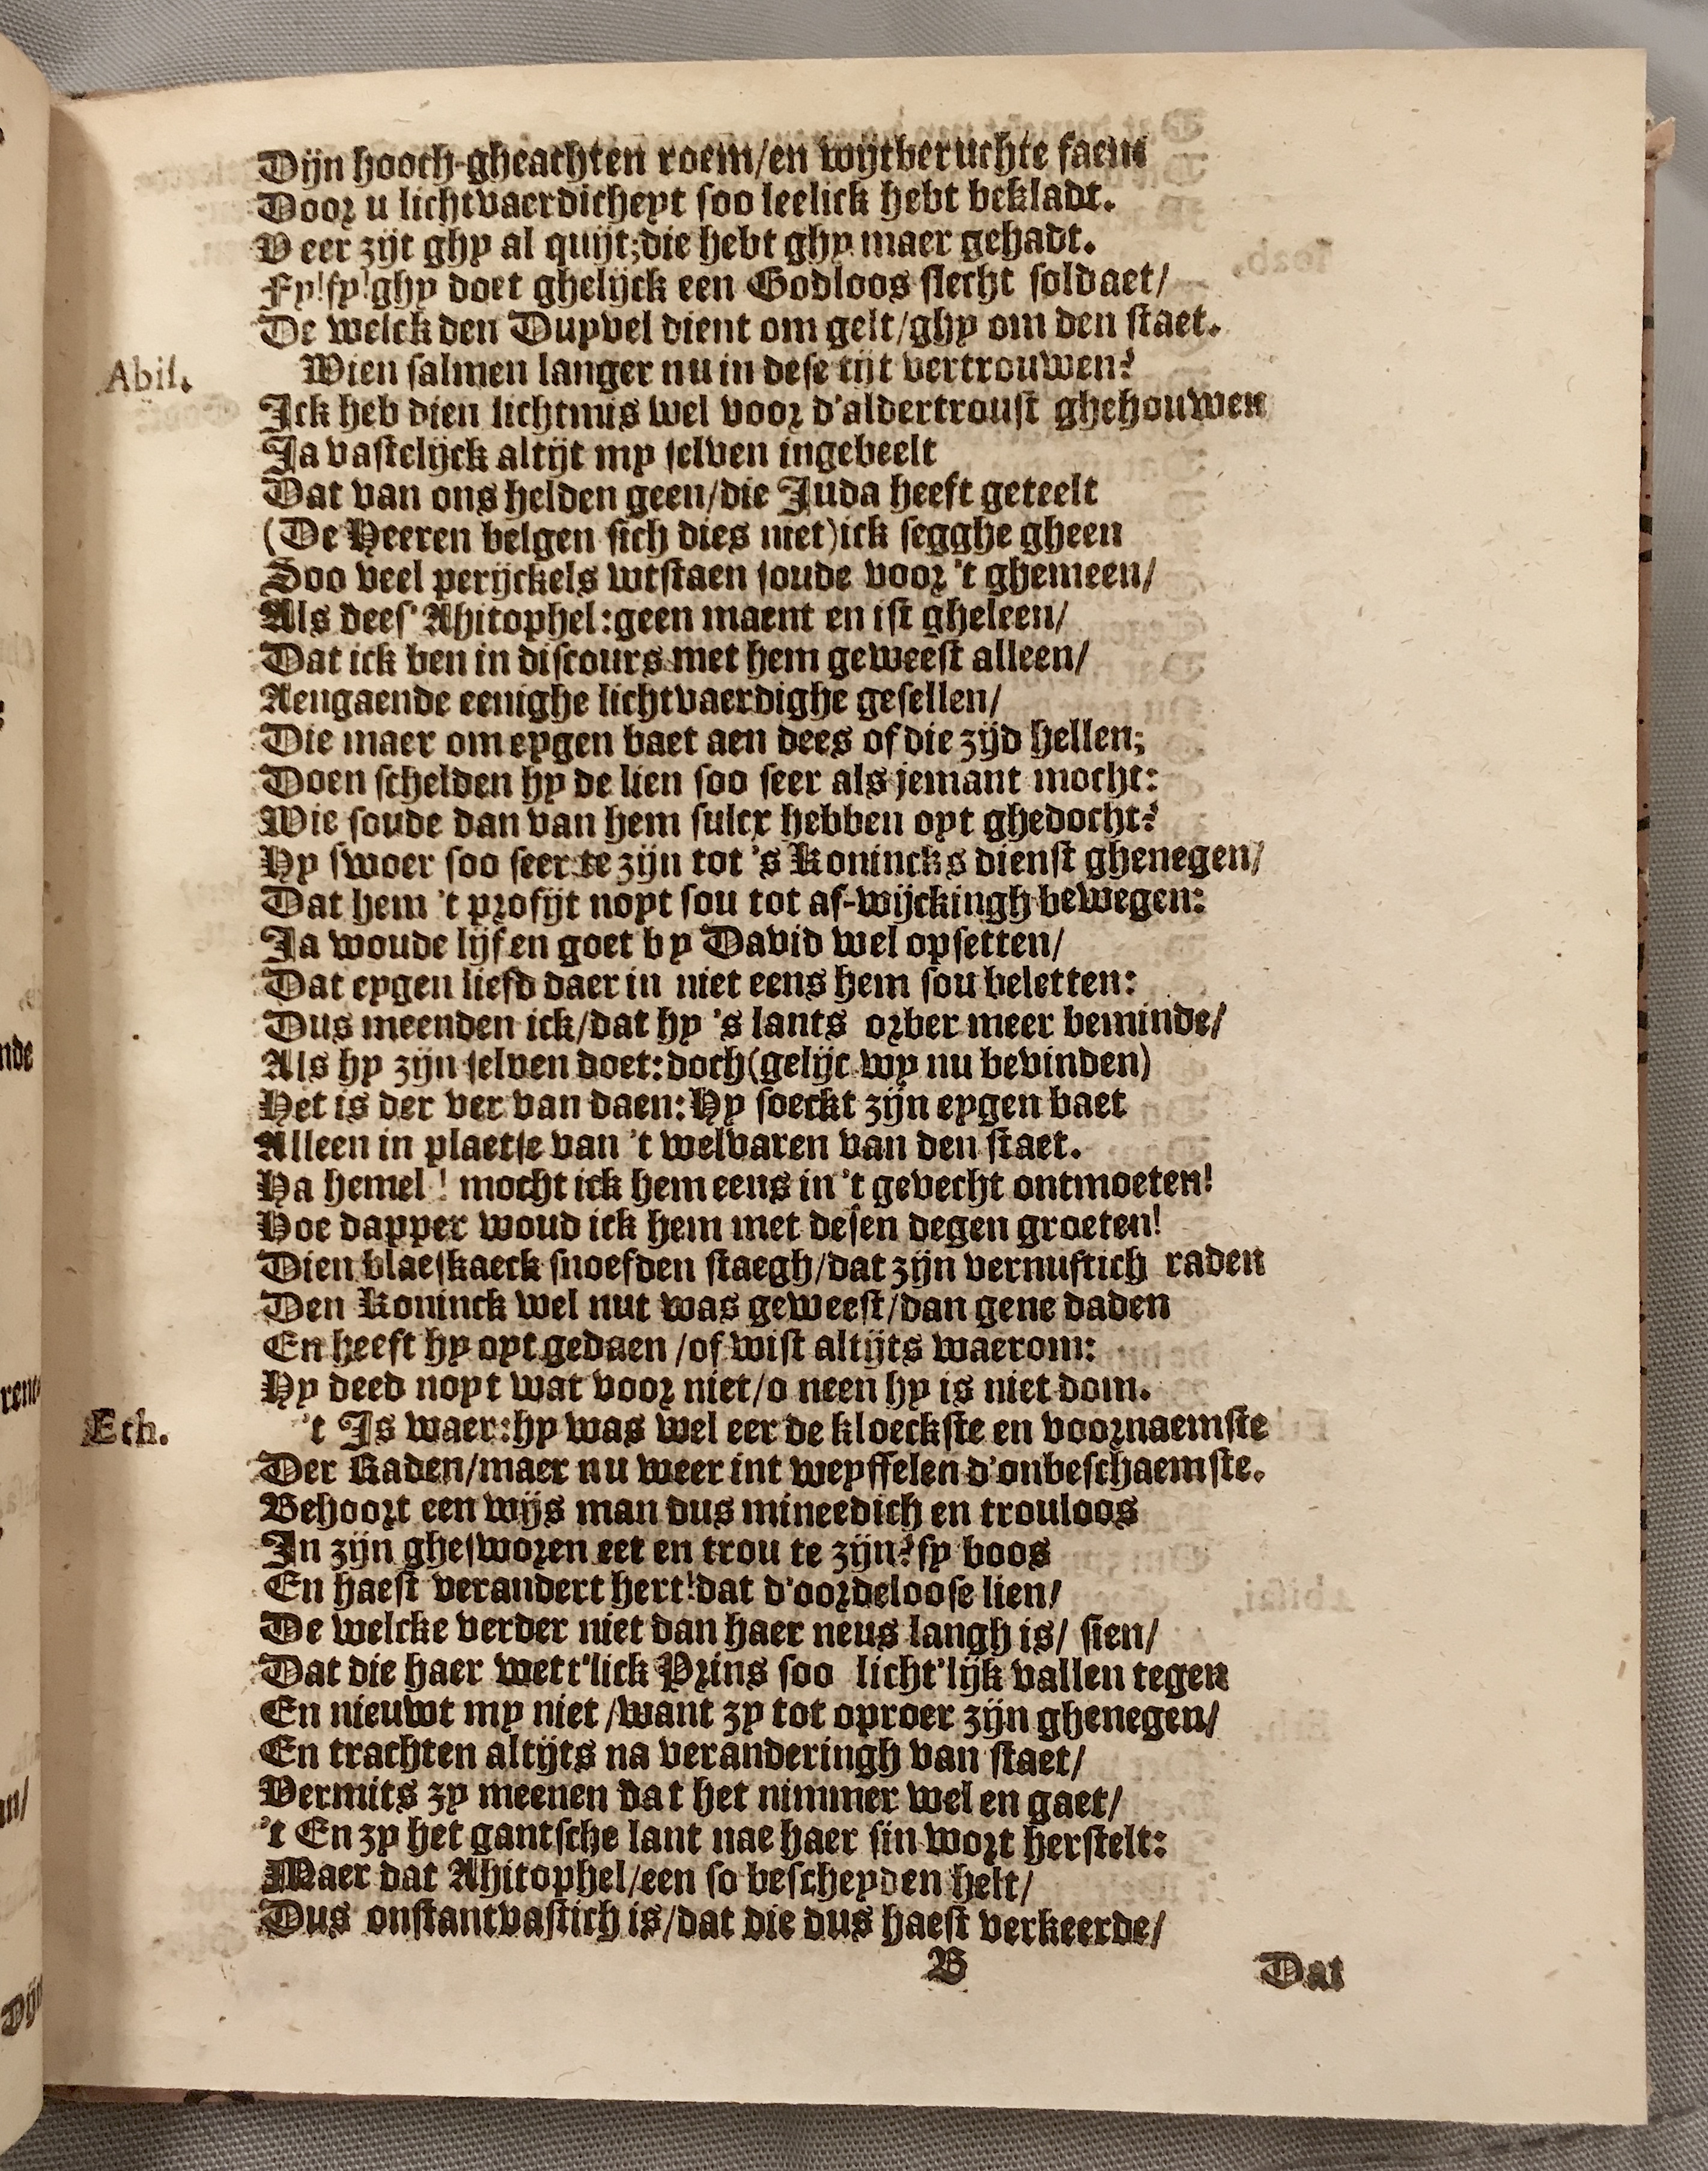 Dijn hooch-gheachten roem/en wijtberuchte faem
Door u lichtvaerdicheyt soo leelick hebt bekladt.
V eer zijt ghy al quijt;die hebt ghy maer gehadt.
Fy!fy!ghy doet ghelijck een Godloos slecht soldaet/
De welck den Duyvel dient om gelt/ghy om den staet.
Abis. Wien salmen langer nu in dese tijt vertrouwen?
Ick heb dien lichtmis wel voor d'aldertroust ghehouwen
Ja vastelijck altijt my selven ingebeelt
Dat van ons helden geen/die Juda heeft geteelt
(De Heeren belgen sich dies niet)ick segghe gheen
Soo veel perijckels wtstaen soude voor 't ghemeen/
Als dees' Ahitophel:geen maent en ist gheleen/
Dat ick ben in discours met hem geweest alleen/
Aengaende eenighe lichtvaerdighe gesellen/
Die maer om eygen baet aen dees of die zijd hellen;
Doen schelden hy de lien soo seer als jemant mocht:
Wie soude dan van hem sulcx hebben oyt ghedocht?
Hy swoer soo seer te zijn tot 's Konincks dienst ghenegen/
Dat hem 't profijt noyt sou tot af-wijckingh bewegen:
Ja woude lijf en goet by David wel opsetten/
Dat eygen liefd daer in niet eens hem sou beletten:
Dus meenden ick/dat hy 's lants orber meer beminde/
Als hy zijn selven doet:doch(gelijc wy nu bevinden)
Het is der ver van daen:Hy soeckt zijn eygen baet
Alleen in plaetse van 't welvaren van den staet.
Ha hemel! mocht ick hem eens in 't gevecht ontmoeten!
Hoe dapper woud ick hem met desen degen groeten!
Dien blaeskaeck snoefden staegh/dat zijn vernuftich raden
Den Koninck wel nut was geweest/dan gene daden
En heeft hy oyt gedaen/of wist altijts waerom:
Hy deed noyt wat voor niet/o neen hy is niet dom.
Eth. 't Is waer:hy was wel eer de kloeckste en voornaemste
Der Raden/maer nu weer int weyffelen d'onbeschaemste.
Behoort een wijs man dus mineedich en trouloos
In zijn ghesworen eet en trou te zijn?fy boos
En haest verandert hert!dat d'oordeloose lien/
De welcke verder niet dan haer neus langh is/ sien/
Dat die haer wett'lick Prins soo licht'lijk vallen tegen
En nieuwt my niet/want zy tot oproer zijn ghenegen/
En trachten altijts na veranderingh van staet/
Vermits zy meenen dat het nimmer wel en gaet/
't En zy het gantsche lant nae haer sin wort herstelt:
Maer dat Ahitophel/een so bescheyden helt/
Dus onstantvastich is/dat die dus haest verkeerde/
B Dat